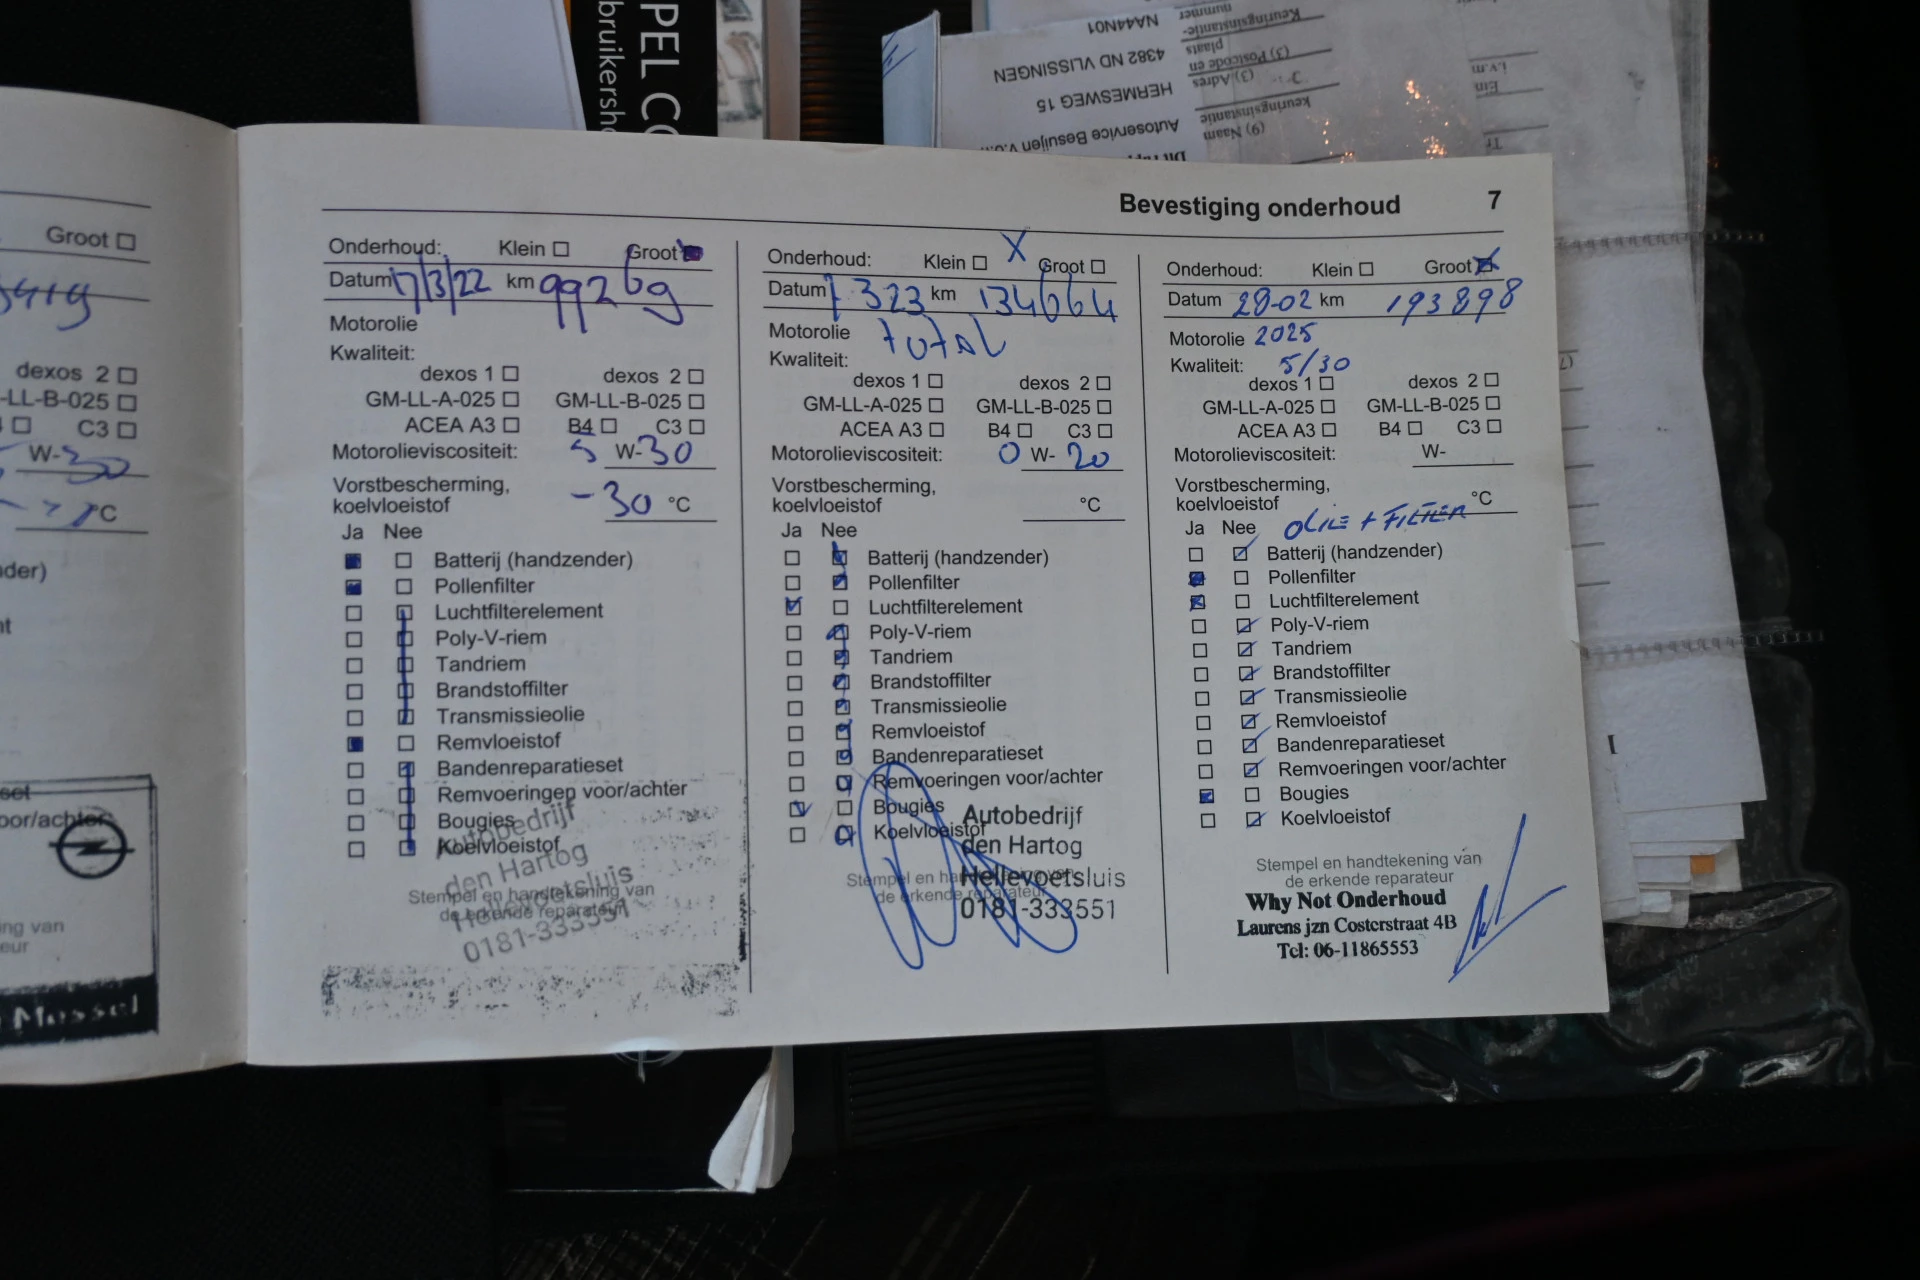 PEL CO
bruikersh
NA44N01
4382 ND VLISSINGEN
HERMESWEG 15
Autoservice Besuijen v.o.
nummer
Keuringsinstantie-
plaats
(3) Postcode en
(3) Adres
keuringsinstantie
(9) Naam
i.v.m
Ein
Tr
Groot
dexos 2
-LL-B-025
C3
W-30
°C
der)
nt
set
oor/achter
ing van
eur
Mossel
Bevestiging onderhoud 7
Onderhoud: Klein Groot
Datum 17/3/22 km 99269
Motorolie
Kwaliteit:
dexos 1 dexos 2
GM-LL-A-025 GM-LL-B-025
ACEA A3 B4 C3
Motorolieviscositeit: 5 W-30
Vorstbescherming,
koelvloeistof -30 °C
Ja Nee
Batterij (handzender)
Pollenfilter
Luchtfilterelement
Poly-V-riem
Tandriem
Brandstoffilter
Transmissieolie
Remvloeistof
Bandenreparatieset
Remvoeringen voor/achter
Bougies
Koelvloeistof
Stempel en handtekening van
de erkende reparateur
Autobedrijf
den Hartog
Hellevoetsluis
0181-333551
Onderhoud: Klein X Groot
Datum 7 323 km 134664
Motorolie TOTAL
Kwaliteit:
dexos 1 dexos 2
GM-LL-A-025 GM-LL-B-025
ACEA A3 B4 C3
Motorolieviscositeit: 0 W-20
Vorstbescherming,
koelvloeistof °C
Ja Nee
Batterij (handzender)
Pollenfilter
Luchtfilterelement
Poly-V-riem
Tandriem
Brandstoffilter
Transmissieolie
Remvloeistof
Bandenreparatieset
Remvoeringen voor/achter
Bougies
Koelvloeistof
Stempel en handtekening van
de erkende reparateur
Autobedrijf
den Hartog
Hellevoetsluis
0181-333551
Onderhoud: Klein Groot
Datum 28-02 km 193898
Motorolie 2025
Kwaliteit: 5/30
dexos 1 dexos 2
GM-LL-A-025 GM-LL-B-025
ACEA A3 B4 C3
Motorolieviscositeit: W-
Vorstbescherming,
koelvloeistof °C
Ja Nee OLIE + FILTER
Batterij (handzender)
Pollenfilter
Luchtfilterelement
Poly-V-riem
Tandriem
Brandstoffilter
Transmissieolie
Remvloeistof
Bandenreparatieset
Remvoeringen voor/achter
Bougies
Koelvloeistof
Stempel en handtekening van
de erkende reparateur
Why Not Onderhoud
Laurens jzn Costerstraat 4B
Tel: 06-11865553